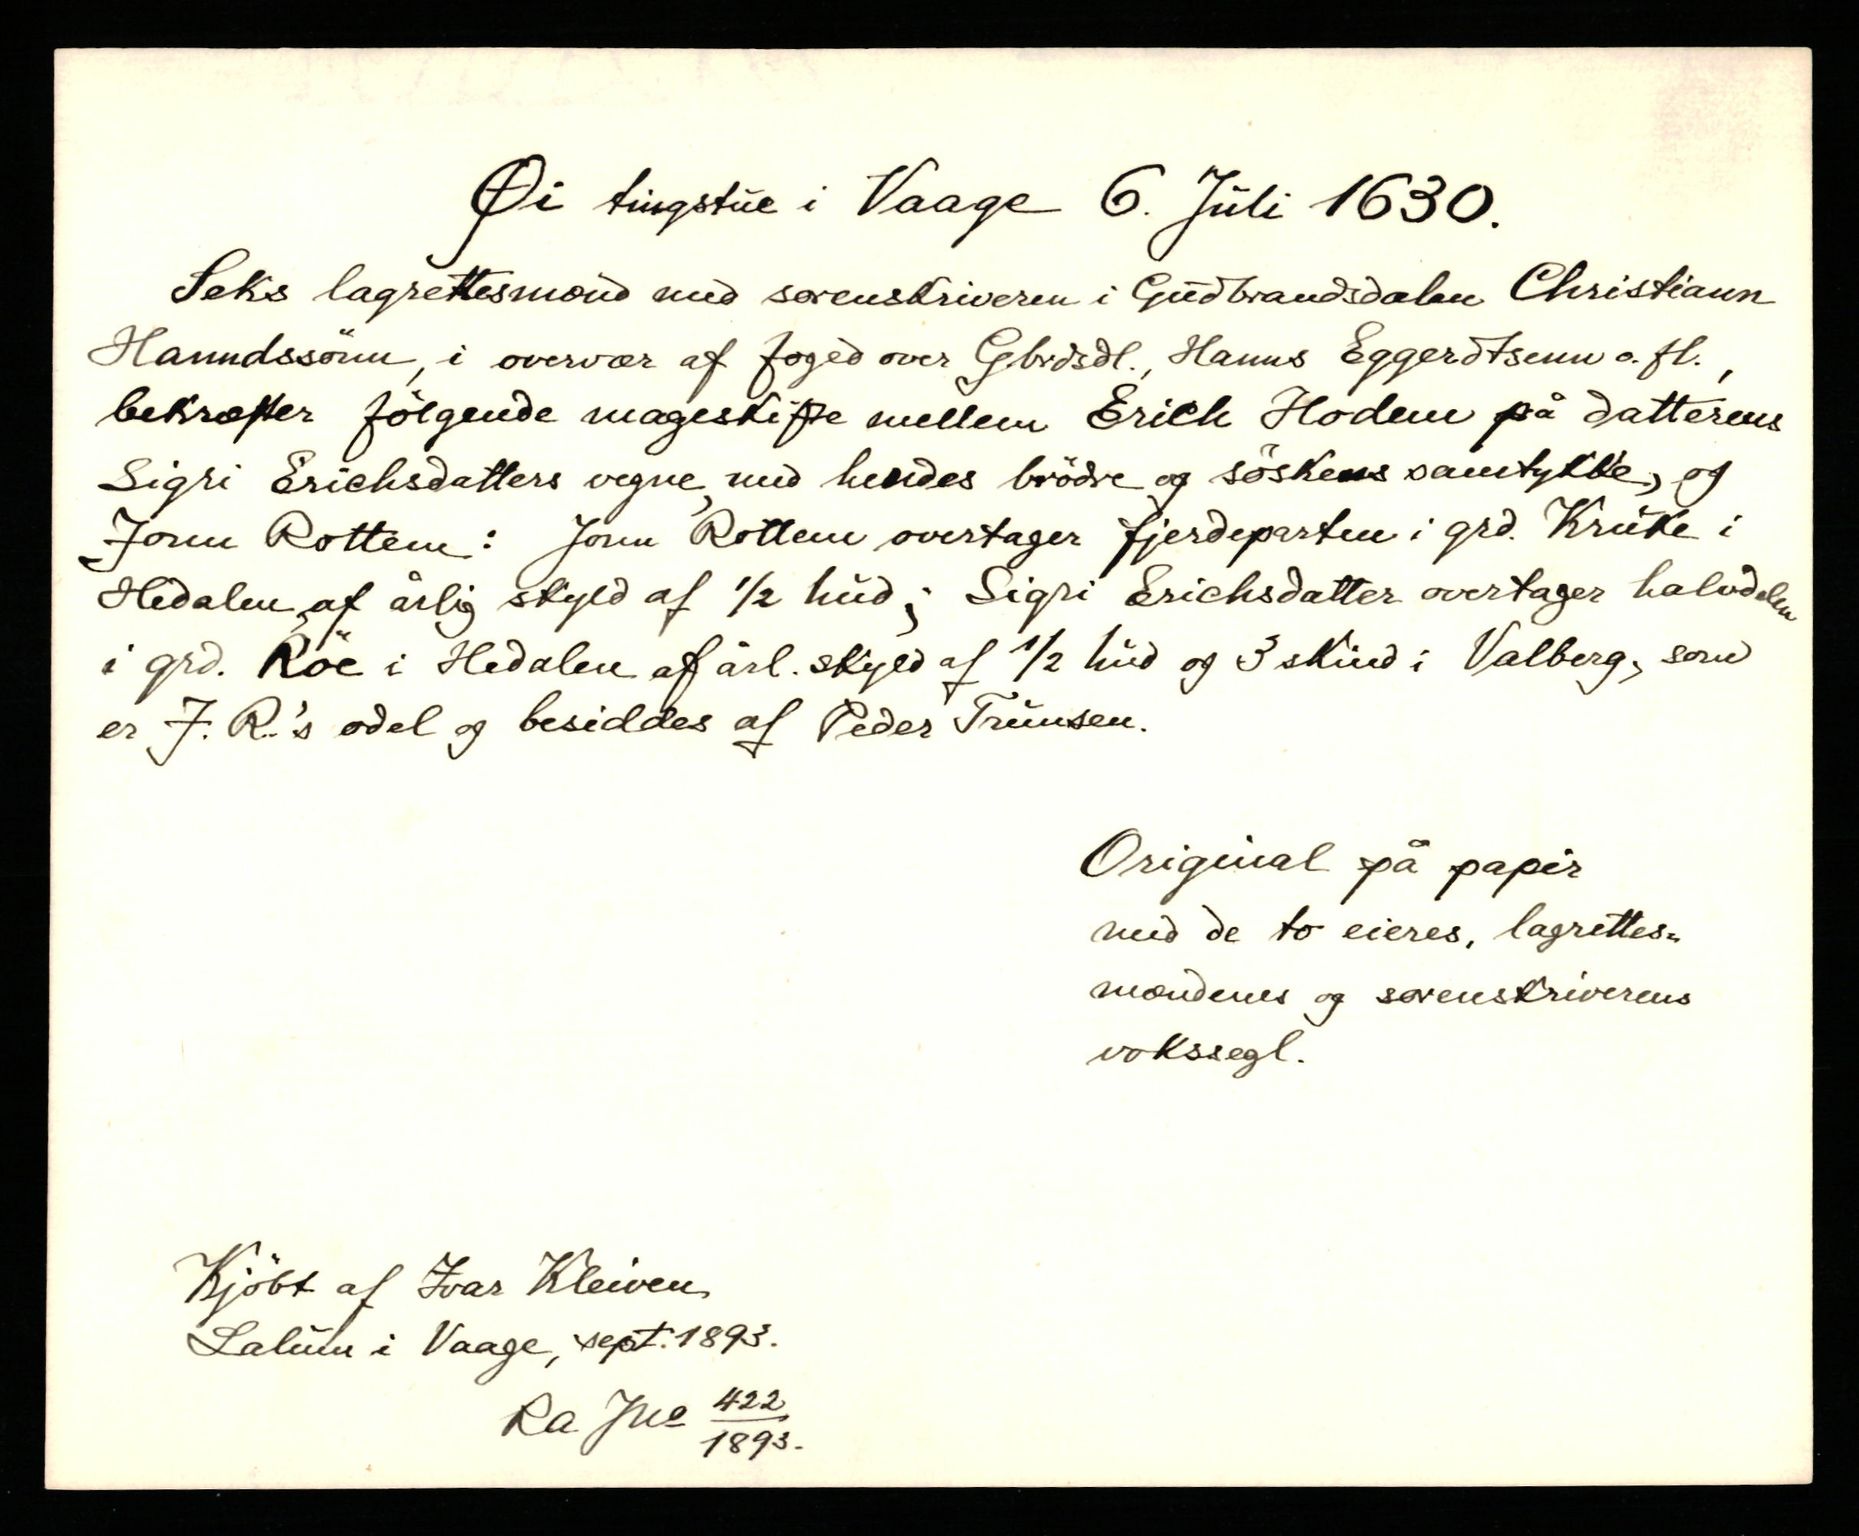 Øi tingstue i Vaage 6. Juli 1630.
Seks lagrettesmænd med sorenskriveren i Gudbrandsdalen Christiann
Hanndssönn, i overvær af foged over Gbrdsdl., Hanns Eggerdtsenn o. fl.,
bekræfter fölgende mageskifte mellem Erich Hodem på datterens
Sigri Erichsdatters vegne, med hendes brödre og söskens samtykke, og
Jonn Rottem: Jonn Rottem overtager fjerdeparten i grd. Kruke i
Hedalen, af årlig skyld af 1/2 hud; Sigri Erichsdatter overtager halvdelen
i grd. Röe i Hedalen af årl. skyld af 1/2 hud og 3 skind i Valberg, som
er J. R.'s odel og besiddes af Peder Trunsen.
Original på papir
med de to eieres, lagrettes-
mændenes og sorenskriverens
vokssegl.
Kjöbt af Ivar Kleiven
Lalum i Vaage, sept. 1893.
Ra Jno 422/1893.